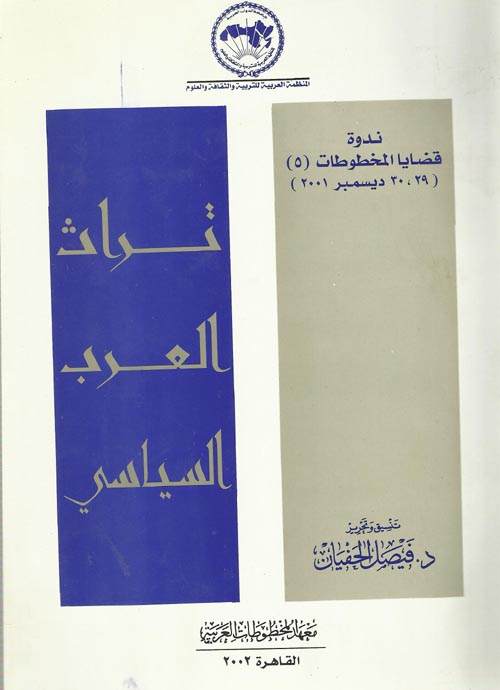 المنظمة العربية للتربية والثقافة والعلوم
ندوة
قضايا المخطوطات (٥)
(٢٩، ٣٠ ديسمبر ٢٠٠١)
تراث
العرب
السياسي
تنسيق وتحرير
د. فيصل الحفيان
معهد المخطوطات العربية
القاهرة ٢٠٠٢